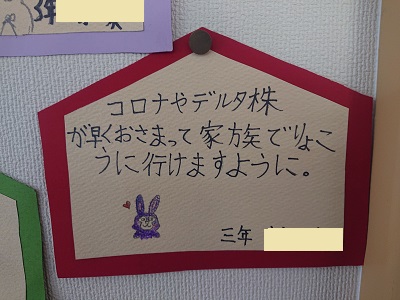 3年
コロナやデルタ株
が早くおさまって家族でりょこ
うに行けますように。
三年